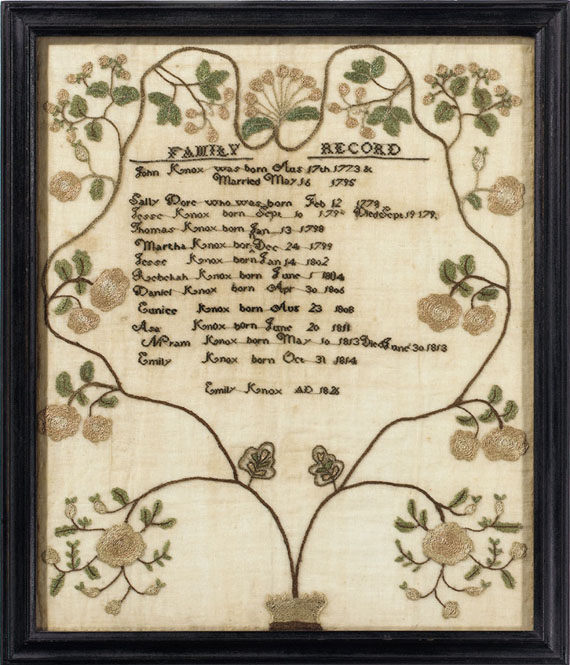 FAMILY RECORD
John Knox was born Aug 17th 1773 &
Married May 16 1795
Sally Dore who was born Feb 12 1778
Jesse Knox born Sept 10 Died Sept 19
Thomas Knox born Jan 13 1798
Martha Knox born Dec 24 1799
Jesse Knox born Jan 14 1802
Rebekah Knox born June 1 1804
Daniel Knox born Apr 30 1806
Eunice Knox born Aug 23 1808
Asa Knox born June 20 1811
Knox born May 10 1813 Died June 30 1813
Emily Knox born Oct 31 1814
Emily Knox AD 1826